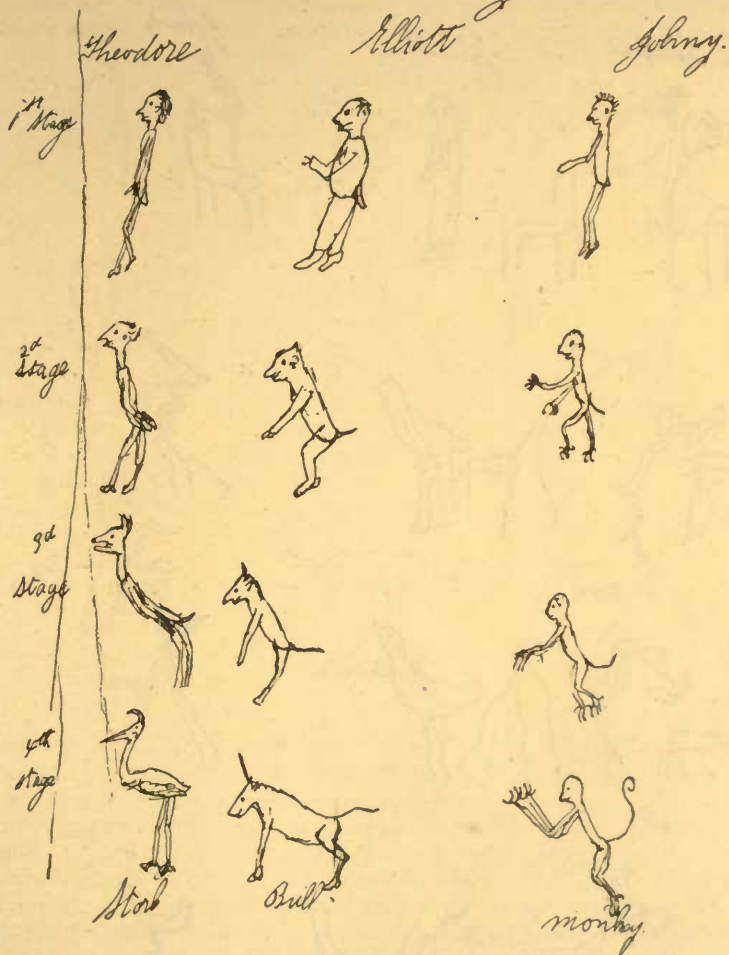 Theodore Elliott Johny.
1st Stage
2d
Stage
3d
Stage
4th
Stage
Stork Bull. monkey.